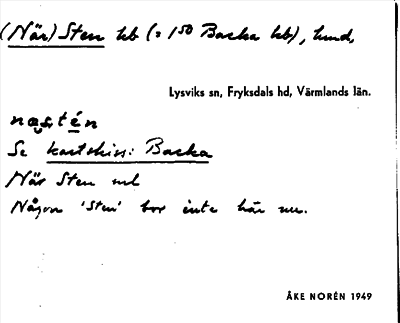 (När) Sten hb (= 1⁵⁰ Backa hb), hmd,
Lysviks sn, Fryksdals hd, Värmlands län.
Se kartskiss: Backa
När Sten ml
Någon 'Sten' bor inte här nu.
ÅKE NORÉN 1949